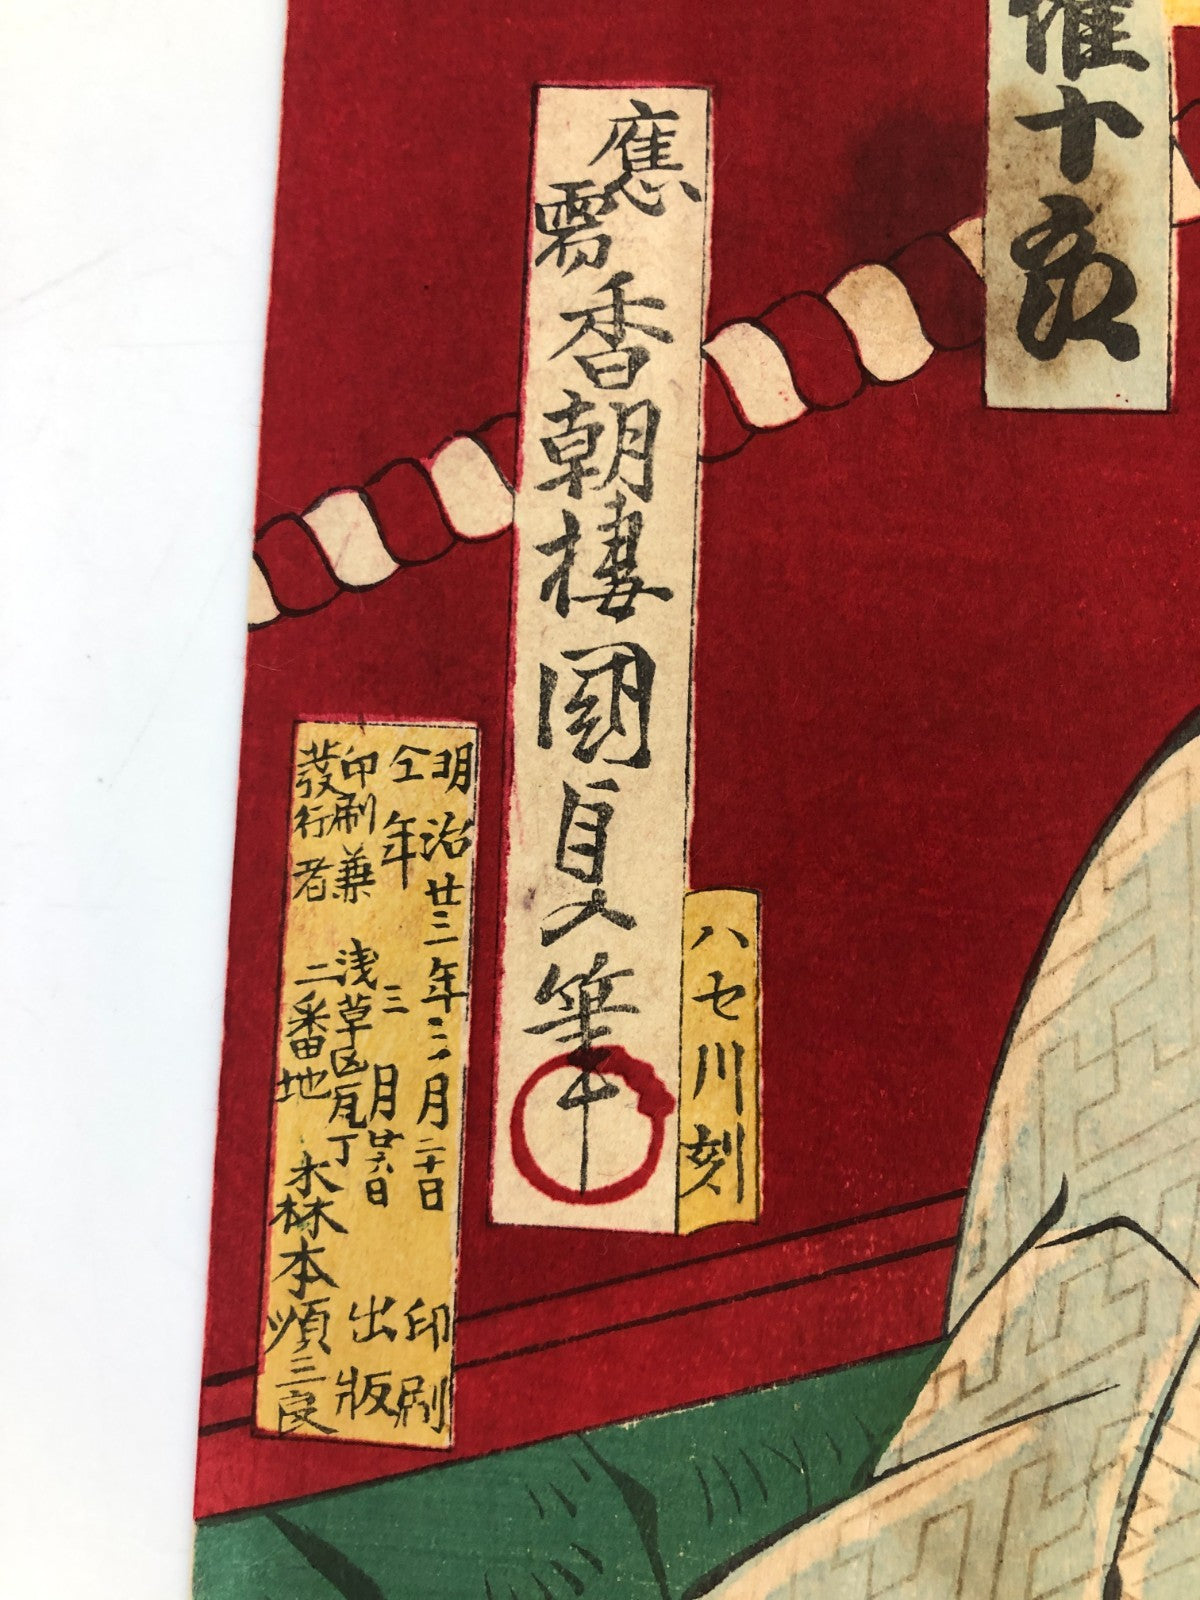 權十郎
ハセ川刻
應需香朝樓國貞筆
明治廿三年三月二十日印刷
仝年三月廿六日出版
印刷兼 浅草区瓦丁
發行者 二番地 森本順三良